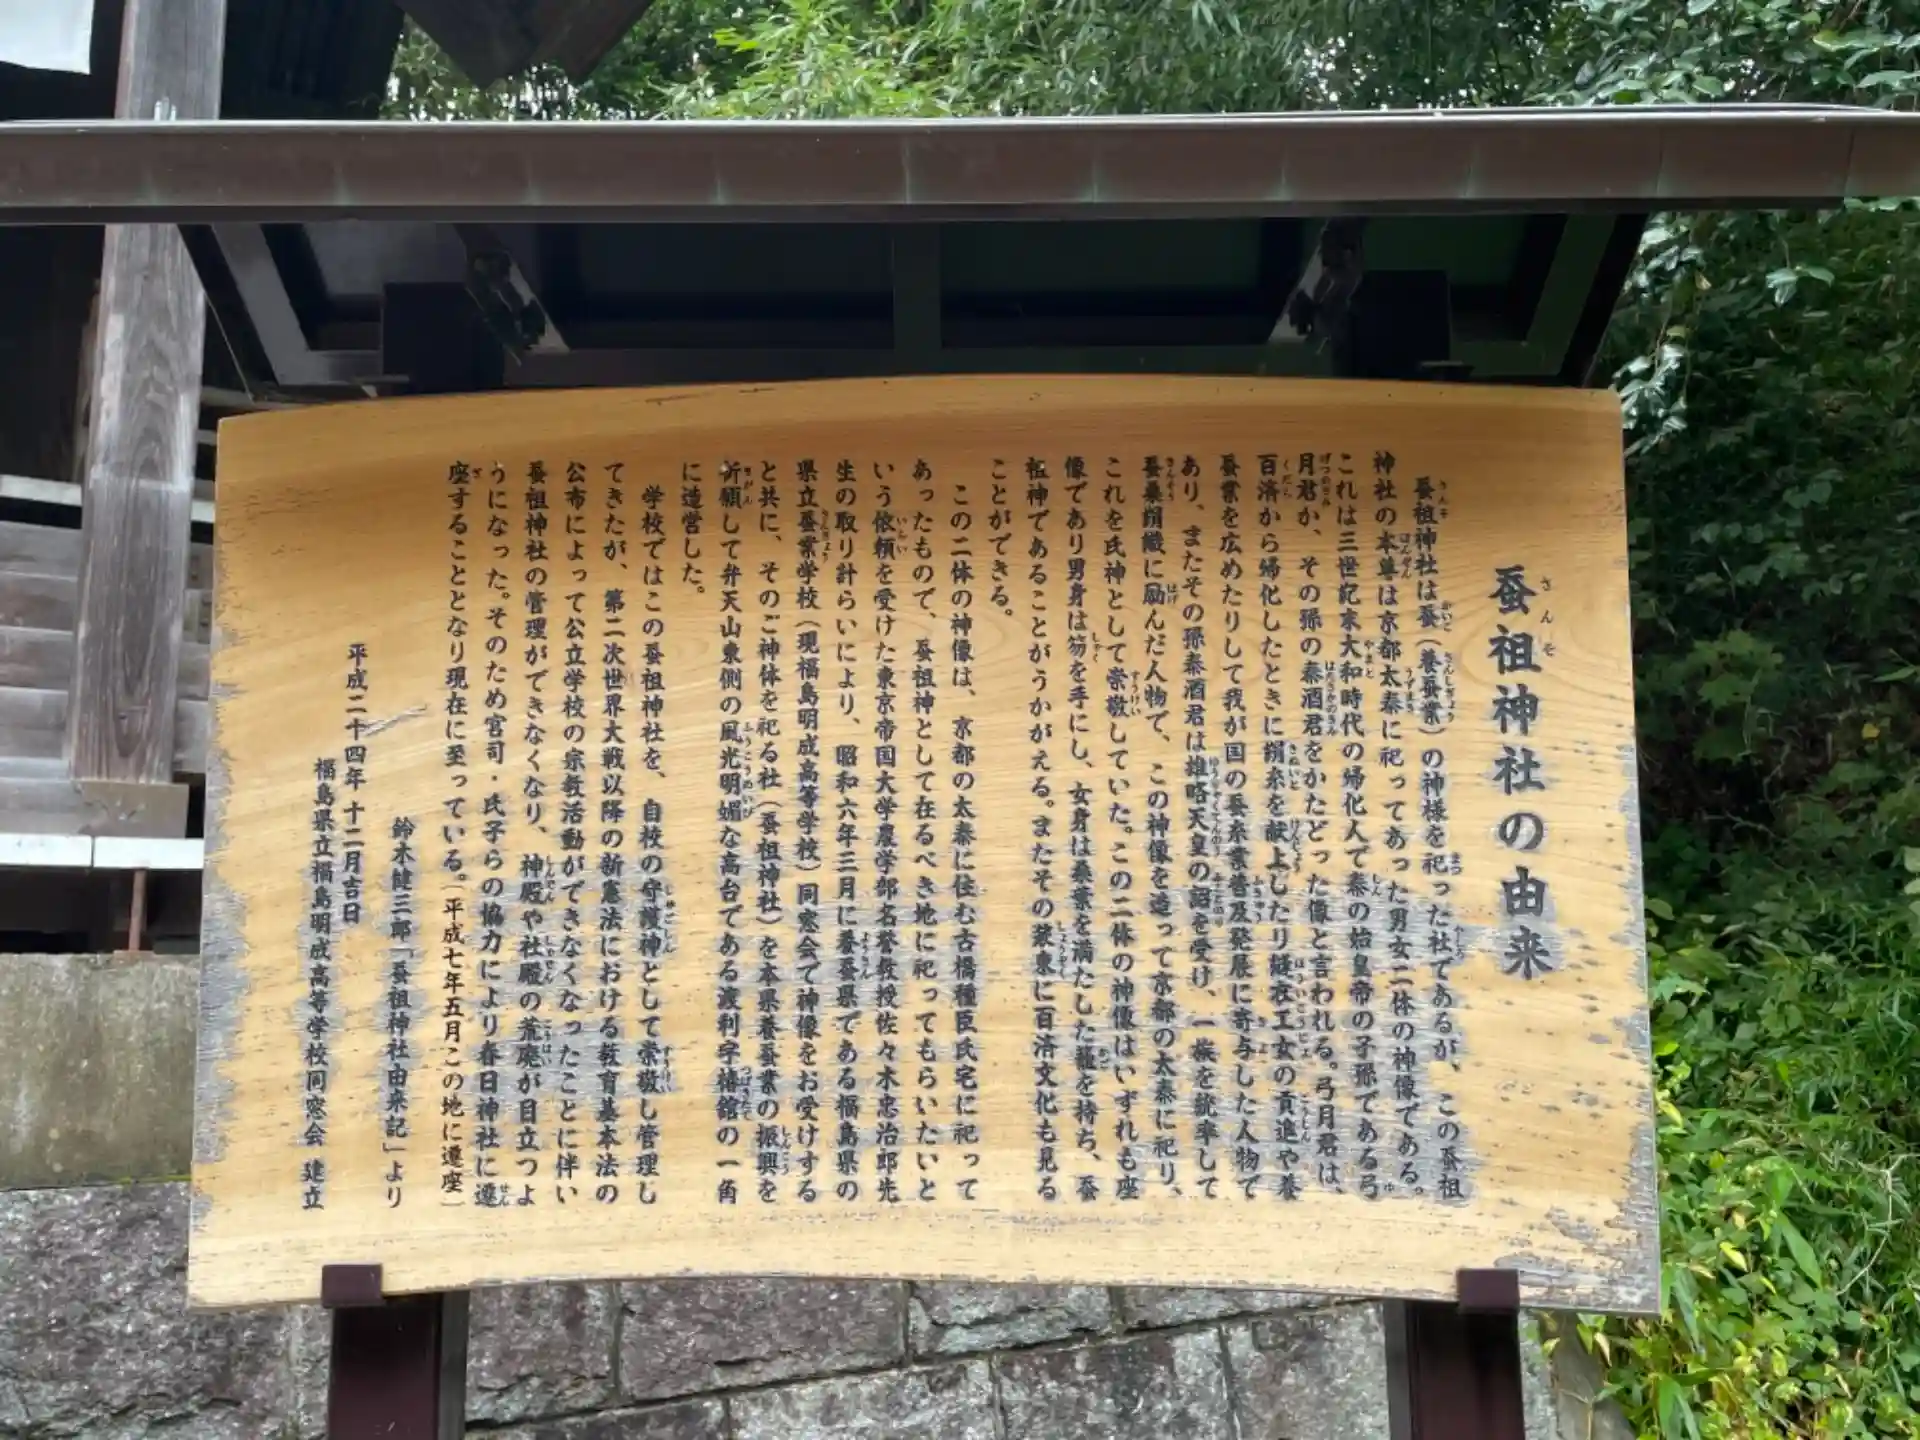 蚕祖神社の由来
蚕祖神社は蚕（養蚕業）の神様を祀った社であるが、この蚕祖
神社の本尊は京都太秦に祀ってあった男女二体の神像である。
これは三世紀末大和時代の帰化人で秦の始皇帝の子孫である弓
月君か、その孫の秦酒君をかたどった像と言われる。弓月君は、
百済から帰化したときに絹糸を献上したり縫衣工女の貢進や養
蚕業を広めたりして我が国の蚕糸業普及発展に寄与した人物で
あり、またその孫秦酒君は雄略天皇の詔を受け、一族を統率して
蚕桑絹織に励んだ人物で、この神像を造って京都の太秦に祀り、
これを氏神として崇敬していた。この二体の神像はいずれも座
像であり男身は笏を手にし、女身は桑葉を満たした籠を持ち、蚕
祖神であることがうかがえる。またその装束に百済文化も見る
ことができる。
この二体の神像は、京都の太秦に住む古橋種臣氏宅に祀って
あったもので、蚕祖神として在るべき地に祀ってもらいたいと
いう依頼を受けた東京帝国大学農学部名誉教授佐々木忠治郎先
生の取り計らいにより、昭和六年三月に養蚕県である福島県の
県立蚕業学校（現福島明成高等学校）同窓会で神像をお受けする
と共に、そのご神体を祀る社（蚕祖神社）を本県養蚕業の振興を
祈願して弁天山東側の風光明媚な高台である渡利字椿舘の一角
に造営した。
学校ではこの蚕祖神社を、自校の守護神として崇敬し管理し
てきたが、第二次世界大戦以降の新憲法における教育基本法の
公布によって公立学校の宗教活動ができなくなったことに伴い
蚕祖神社の管理ができなくなり、神殿や社殿の荒廃が目立つよ
うになった。そのため宮司・氏子らの協力により春日神社に遷
座することとなり現在に至っている。（平成七年五月この地に遷座）
鈴木健三郎「蚕祖神社由来記」より
平成二十四年 十二月吉日
福島県立福島明成高等学校同窓会 建立